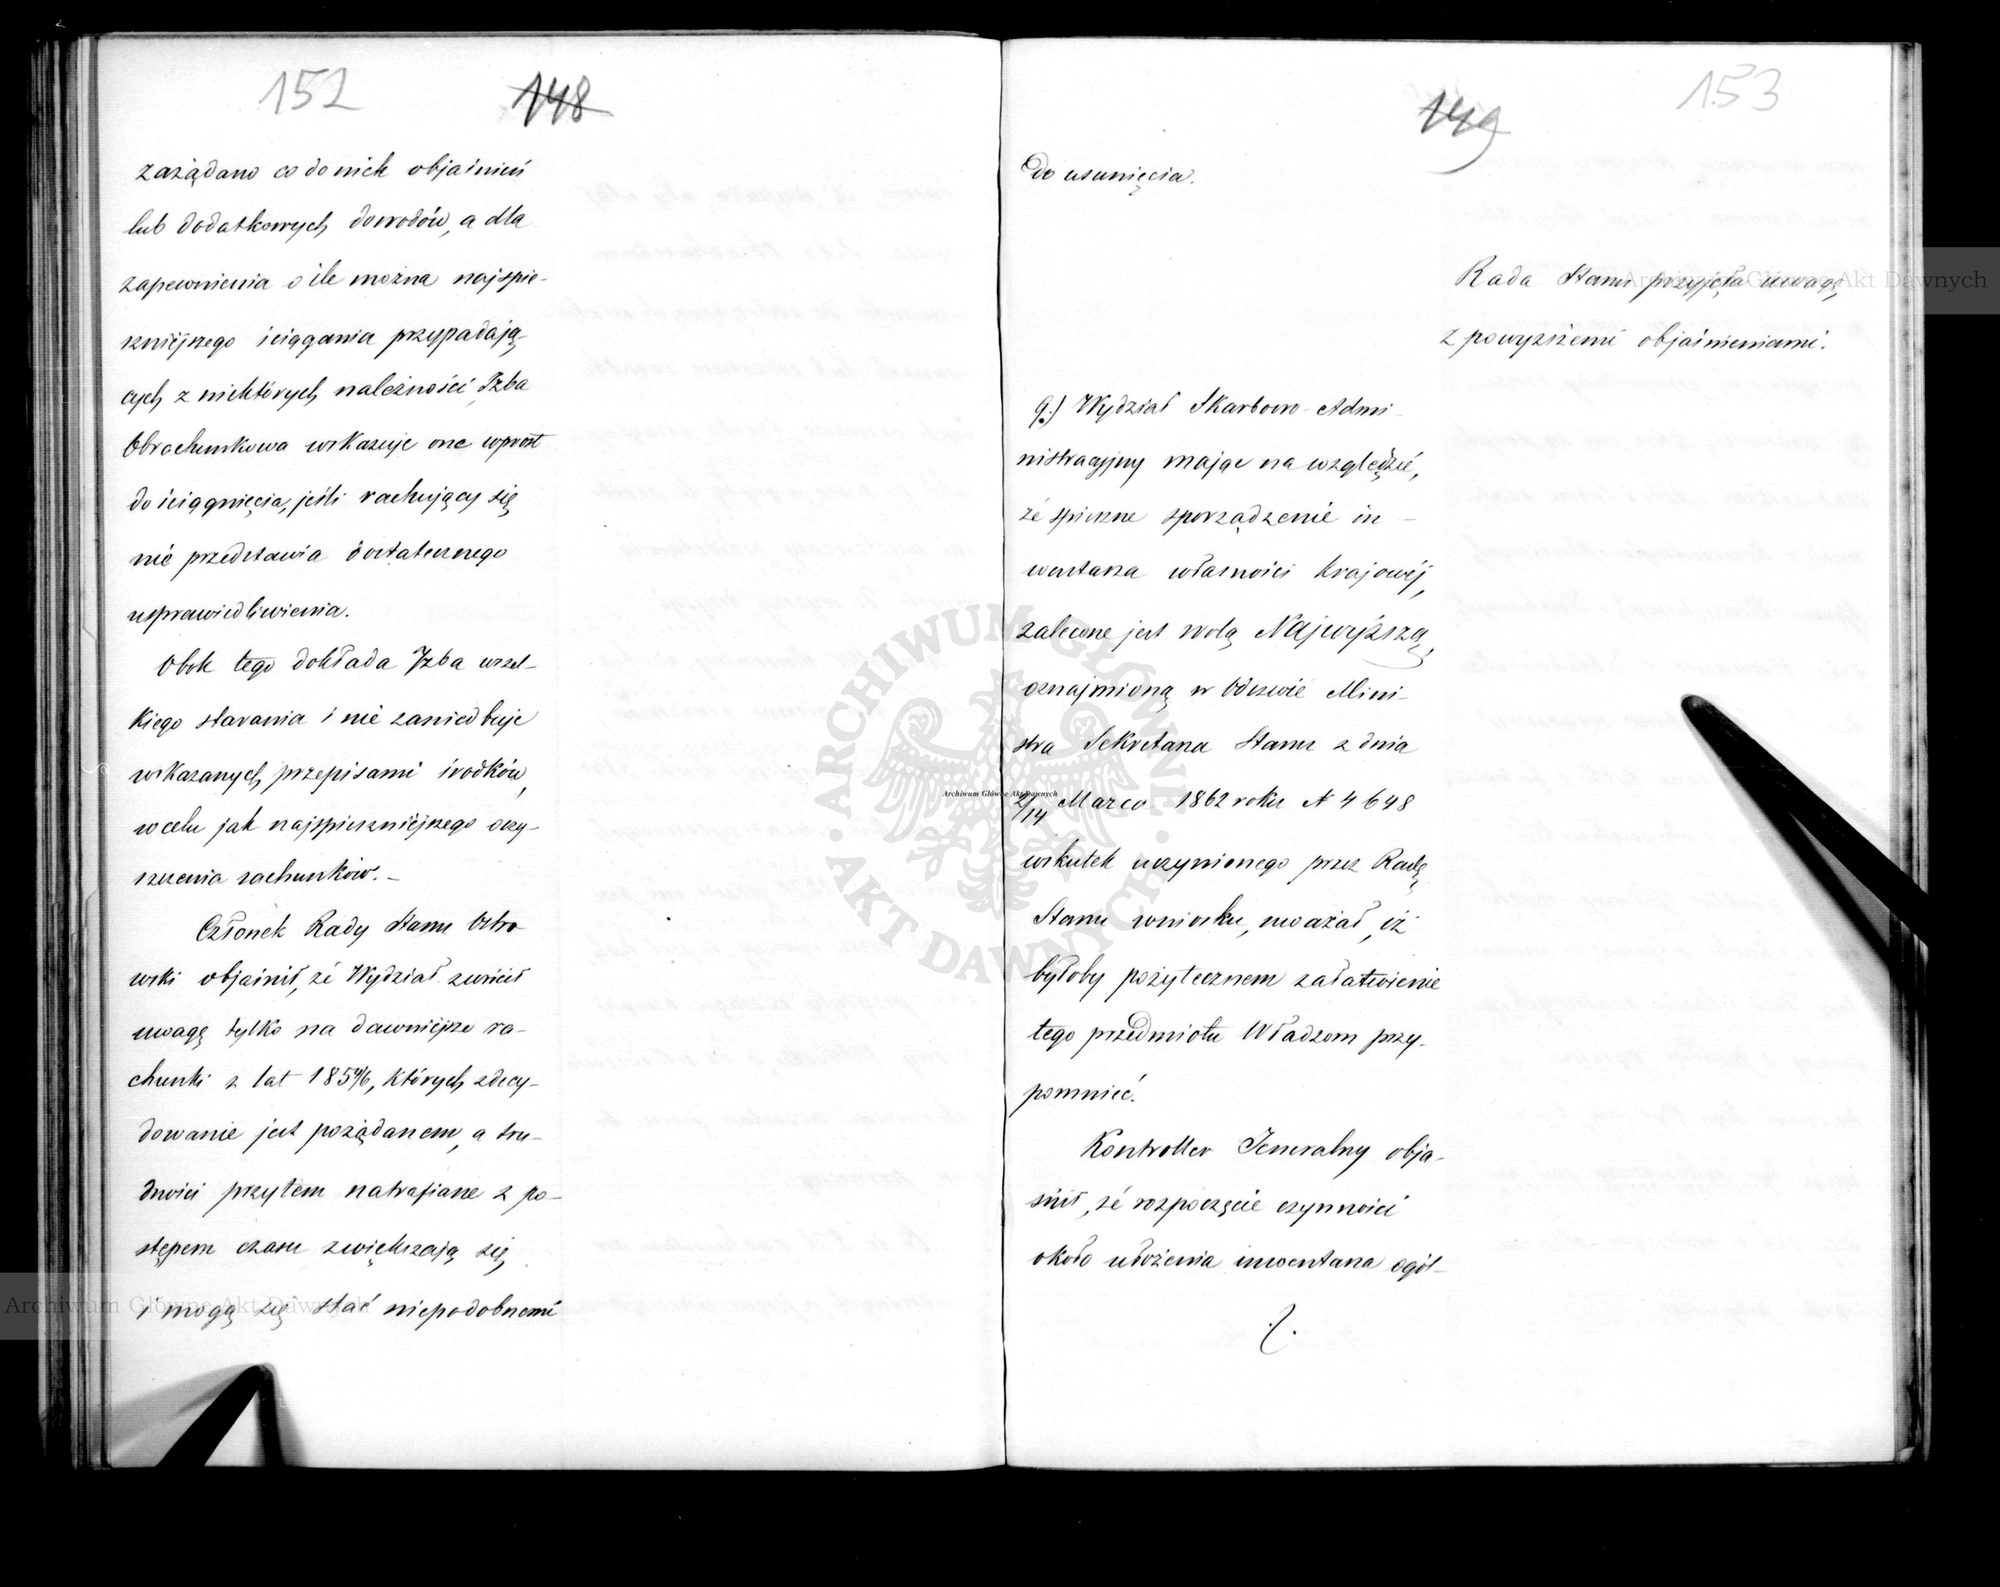 152
148
zażądano co do nich objaśnień
lub dodatkowych dowodów, a dla
zapewnienia o ile można najspie-
szniejszego ściągania przypadają-
cych z niektórych należności Izba
Obrachunkowa wskazuje one wprost
do ściągnięcia, jeśli rachujący się
nie przedstawia dostatecznego
usprawiedliwienia.
Obok tego dokłada Izba wszel-
kiego starania i nie zaniedbuje
wskazanych przepisami środków,
w celu jak najspieszniejszego oczy-
szczenia rachunków. –
Członek Rady Stanu Ostro
wski objaśnił, że Wydział zwrócił
uwagę tylko na dawniejsze ra-
chunki z lat 185 4/6, których zdecy-
dowanie jest pożądanem, a tru-
dności przytem natrafiane z po-
stępem czasu zwiększają się
i mogą się stać niepodobnemi
153
149
do usunięcia.
Rada Stanu przyjęła uwagę
z powyższemi objaśnieniami.
q.) Wydział Skarbowo-Admi-
nistracyjny mając na względzie,
że spieszne sporządzenie in-
wentarza własności Krajowéj,
zalecone jest wolą Najwyższą,
oznajmioną w Odezwie Mini-
stra Sekretarza Stanu z dnia
2/14 Marca 1862 roku N 4648
wskutek uczynionego przez Radę
Stanu wniosku, uważał, iż
byłoby pożytecznem załatwienie
tego przedmiotu Władzom przy-
pomnieć.
Kontroller Jeneralny obja-
śnił, że rozpoczęcie czynności
około ułożenia inwentarza ogól-
Archiwum Główne Akt Dawnych
Archiwum Główne Akt Dawnych
Archiwum Główne Akt Dawnych
ARCHIWUM GŁÓWNE
AKT DAWNYCH